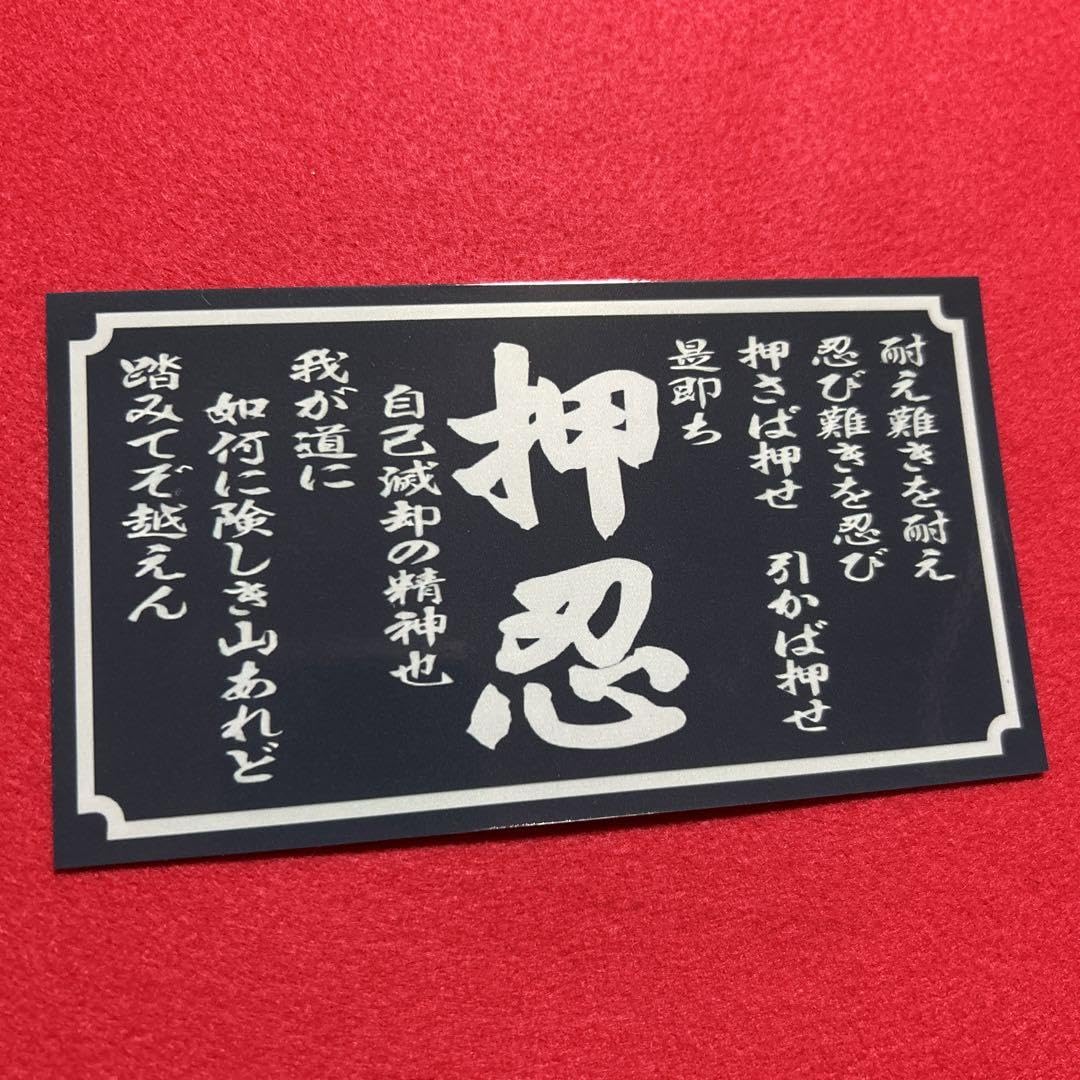 耐え難きを耐え
忍び難きを忍び
押さば押せ 引かば押せ
是即ち
押忍
自己滅却の精神也
我が道に
如何に険しき山あれど
踏みてぞ越えん